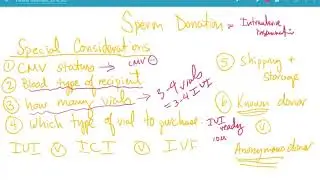 Sperm Donation =
Special Considerations
① CMV status → CMV ⊖
② Blood type of recipient
③ how many vials → 3-4 vials
= 3-4 IUI
④ Which type of vial to purchase
IUI ready
IUI Ⓥ ICI Ⓥ IVF
⑤ Shipping + Storage
⑥ Known donor
Ⓥ
Anonymous donor